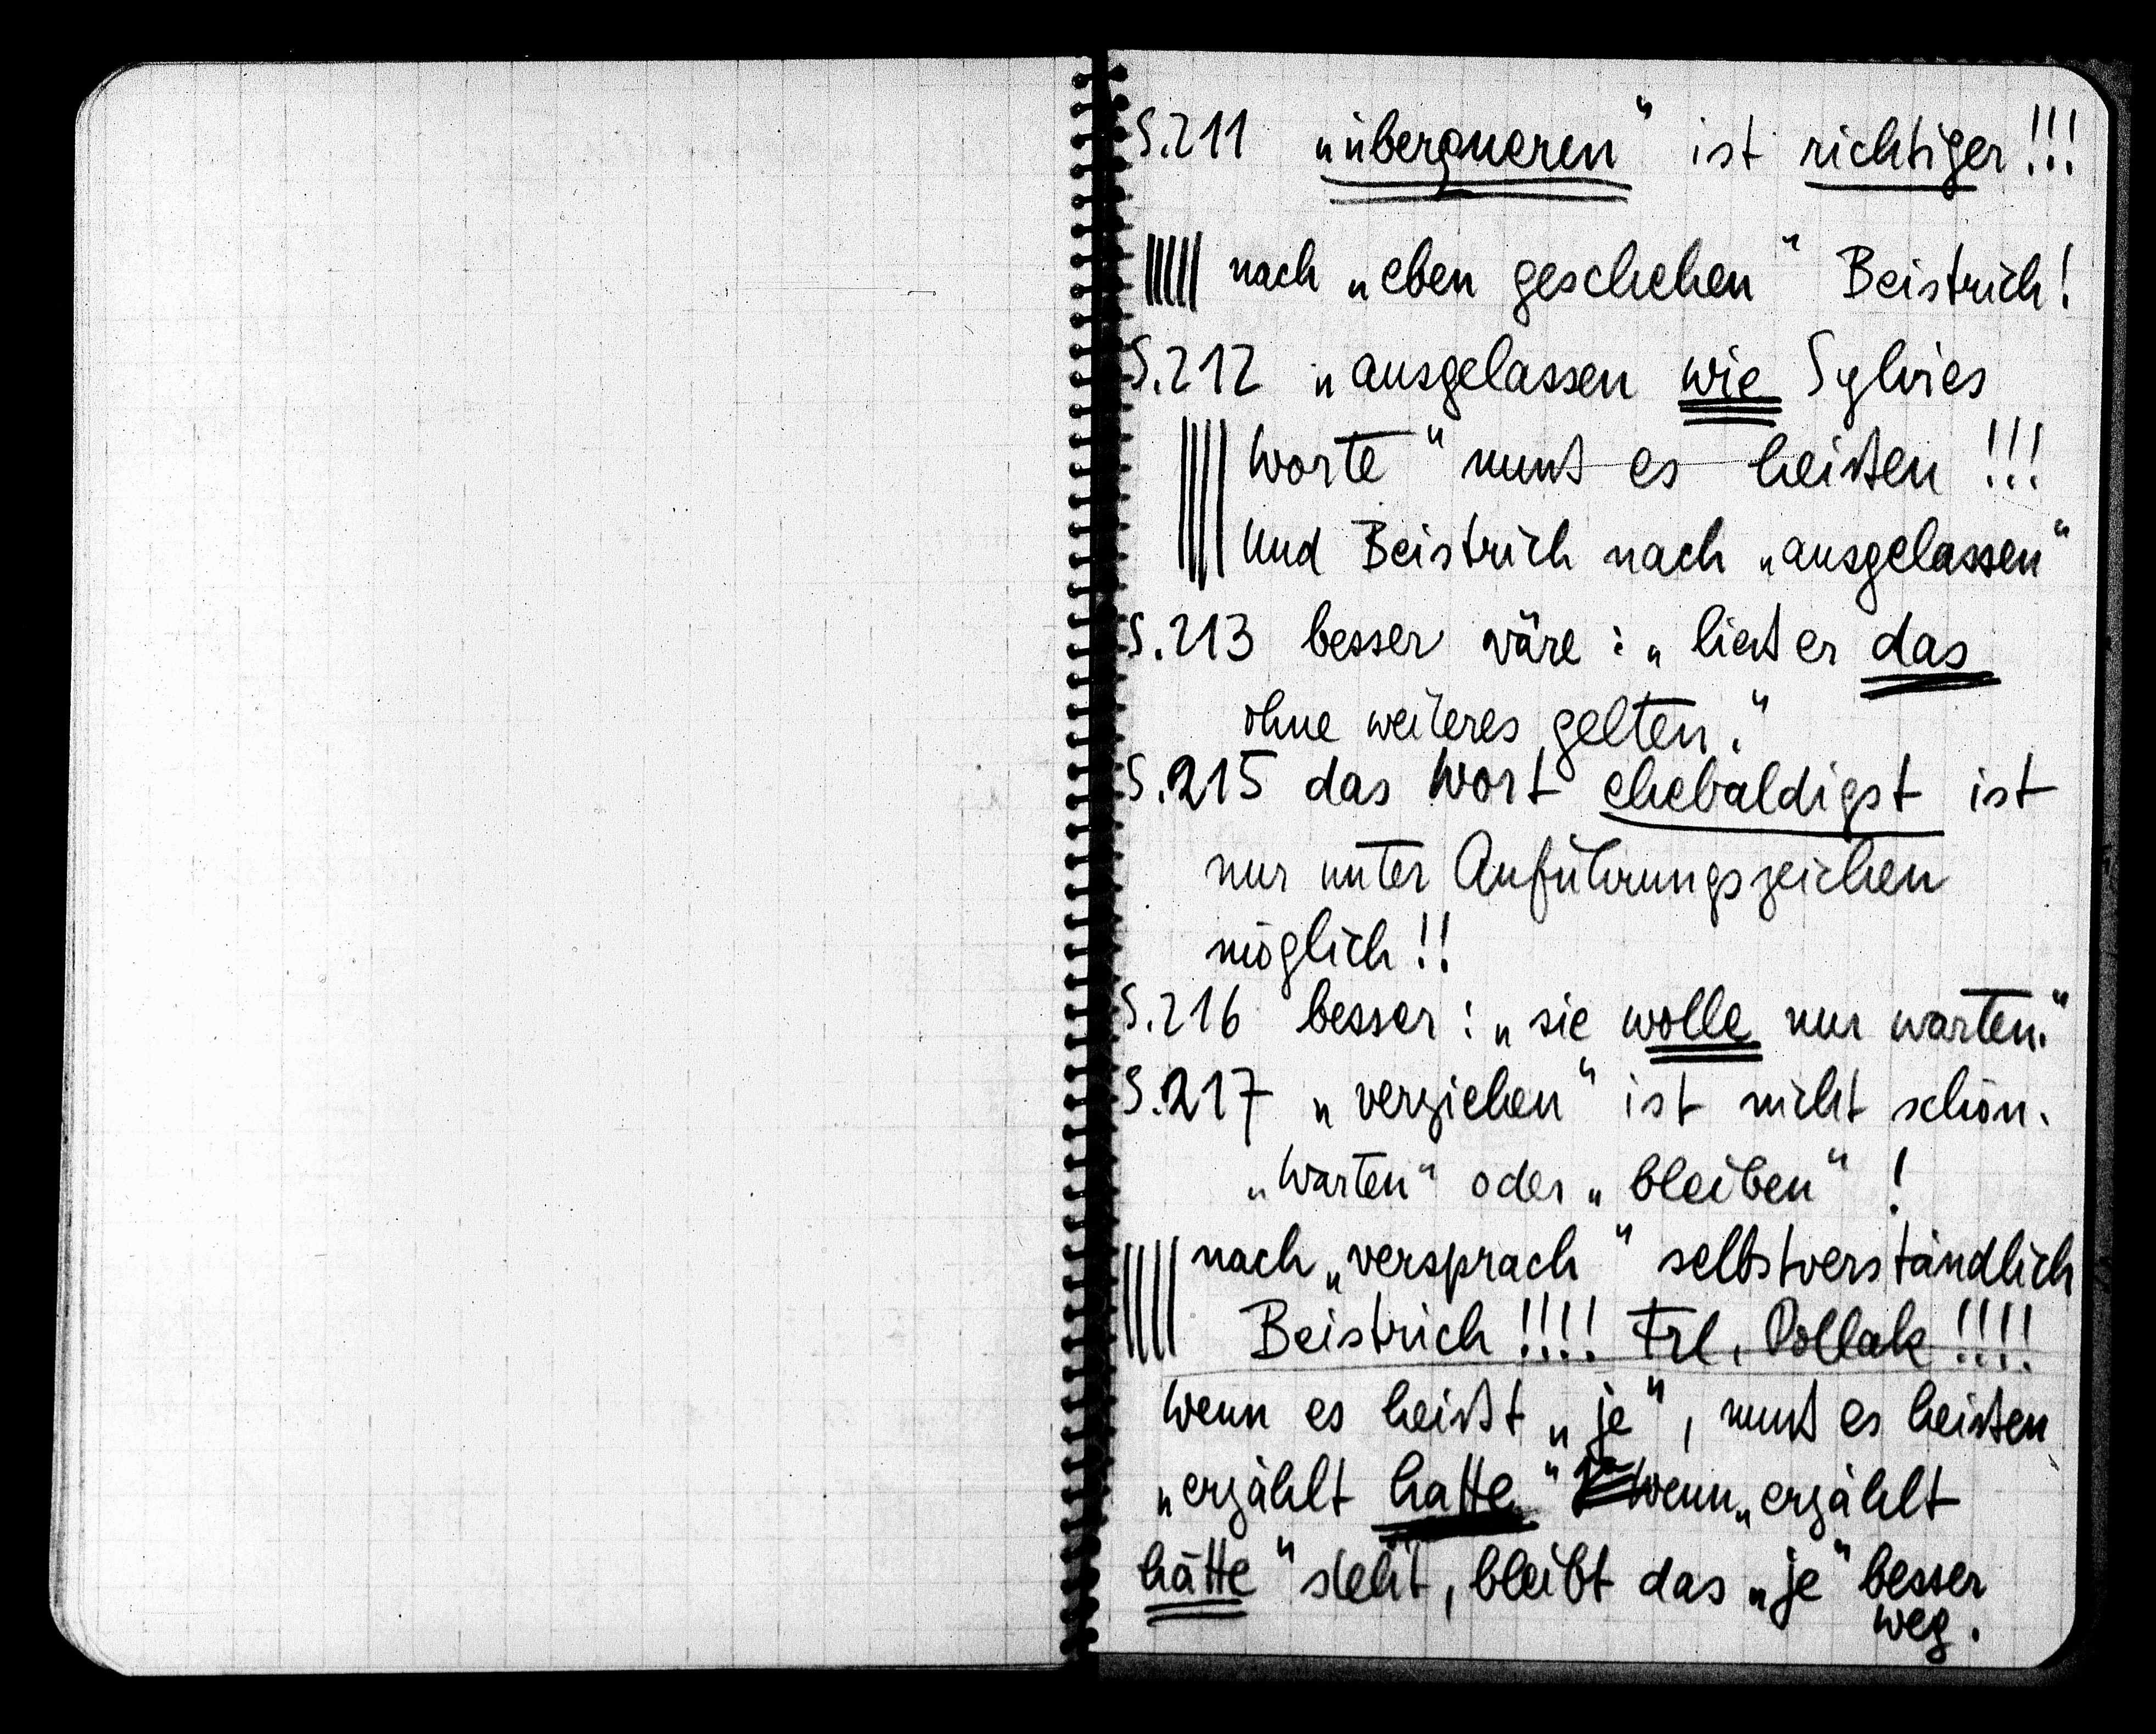 S.211 „überqueren“ ist richtiger!!!
nach „eben geschehen“ Beistrich!
S.212 „ausgelassen wie Sylvies
Worte“ muß es heißen!!!
Und Beistrich nach „ausgelassen“
S.213 besser wäre: „ließ er das
ohne weiteres gelten.“
S.215 das Wort ehebaldigst ist
nur unter Anführungszeichen
möglich!!
S.216 besser: „sie wolle nur warten.“
S.217 „verziehen“ ist nicht schön.
„Warten“ oder „bleiben“!
nach „versprach“ selbstverständlich
Beistrich!!!! Frl. Pollak!!!!
Wenn es heißt „je“, muß es heißen
„erzählt hatte“ Wenn „erzählt
hätte“ steht, bleibt das „je“ besser
weg.